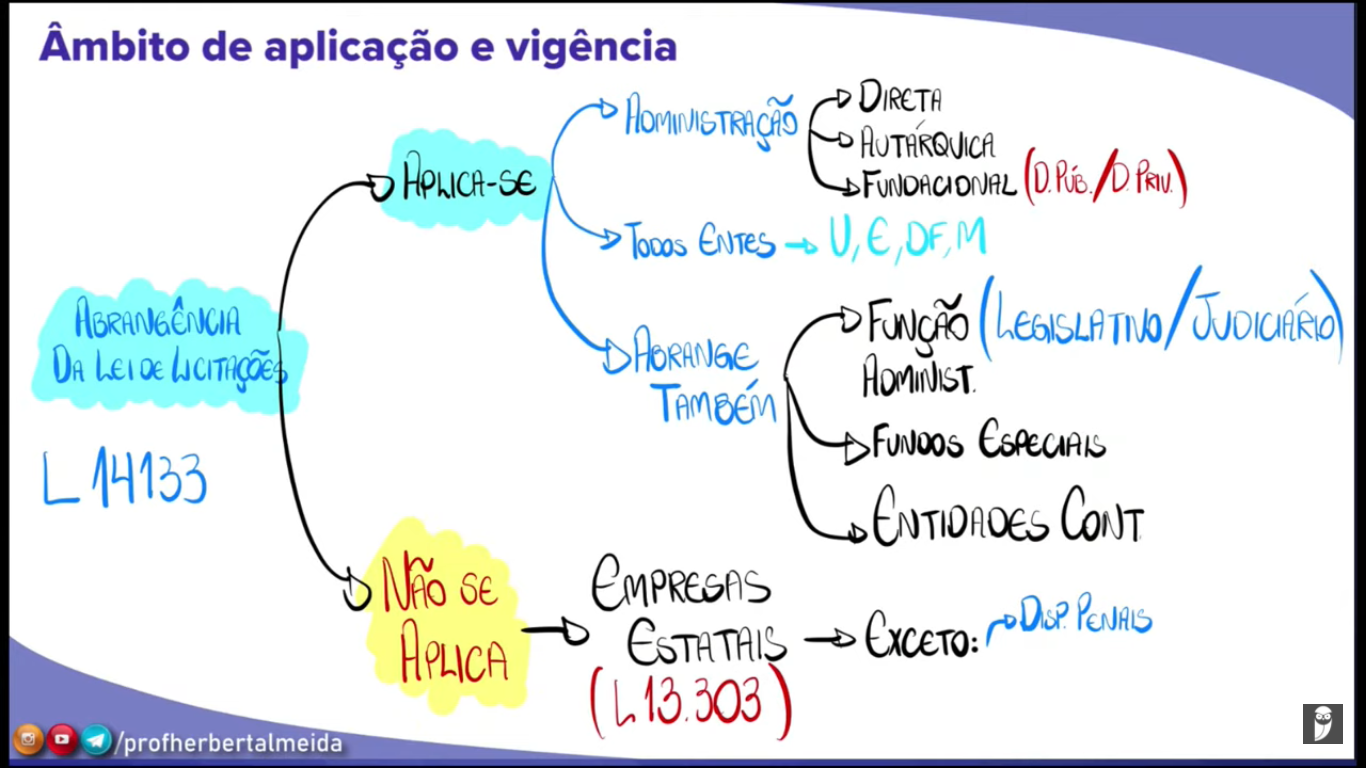 Âmbito de aplicação e vigência
ABRANGÊNCIA
DA LEI DE LICITAÇÕES
L 14133
APLICA-SE
ADMINISTRAÇÃO
DIRETA
AUTÁRQUICA
FUNDACIONAL (D.PÚB./D.PRIV.)
TODOS ENTES → U, E, DF, M
ABRANGE
TAMBÉM
FUNÇÃO (LEGISLATIVO/JUDICIÁRIO)
ADMINIST.
FUNDOS ESPECIAIS
ENTIDADES CONT.
NÃO SE
APLICA
EMPRESAS
ESTATAIS
(L 13.303)
EXCETO:
DISP. PENAIS
/profherbertalmeida